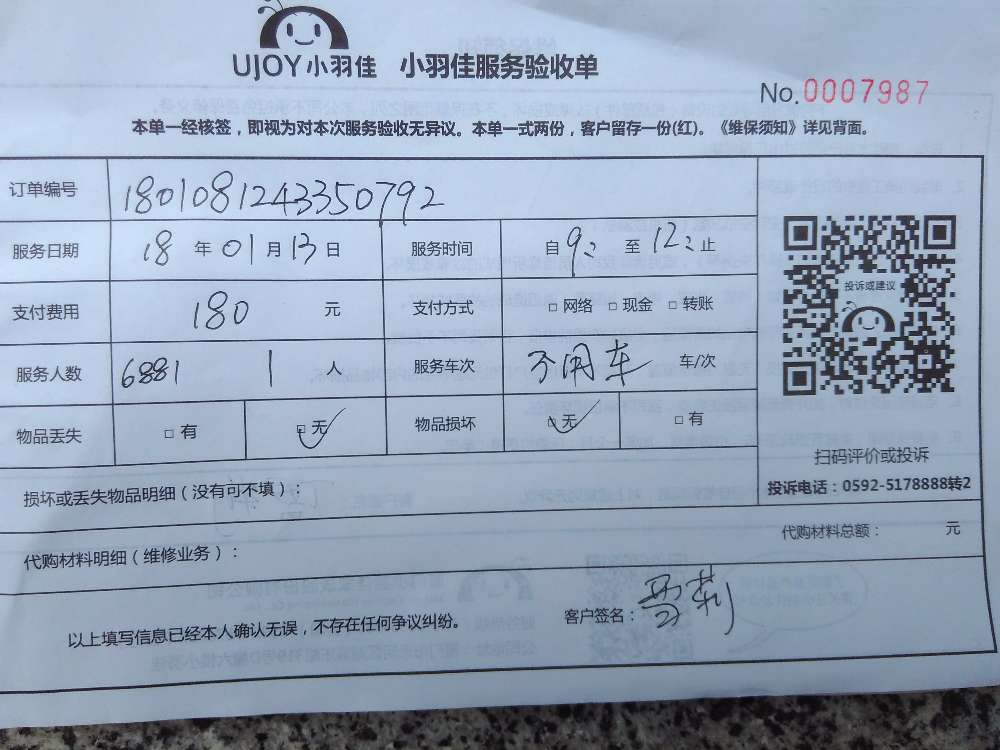 UJOY小羽佳 小羽佳服务验收单
No.0007987
本单一经核签，即视为对本次服务验收无异议。本单一式两份，客户留存一份(红)。《维保须知》详见背面。
订单编号 1801081243350792
服务日期 18 年 01 月 13 日 服务时间 自 9: 至 12: 止
支付费用 180 元 支付方式 □ 网络 □ 现金 □ 转账
服务人数 6881 1 人 服务车次 不用车 车/次
物品丢失 □ 有 □ 无 物品损坏 □ 无 □ 有
投诉或建议
扫码评价或投诉
投诉电话：0592-5178888转2
损坏或丢失物品明细（没有可不填）：
代购材料明细（维修业务）： 代购材料总额： 元
以上填写信息已经本人确认无误，不存在任何争议纠纷。 客户签名：